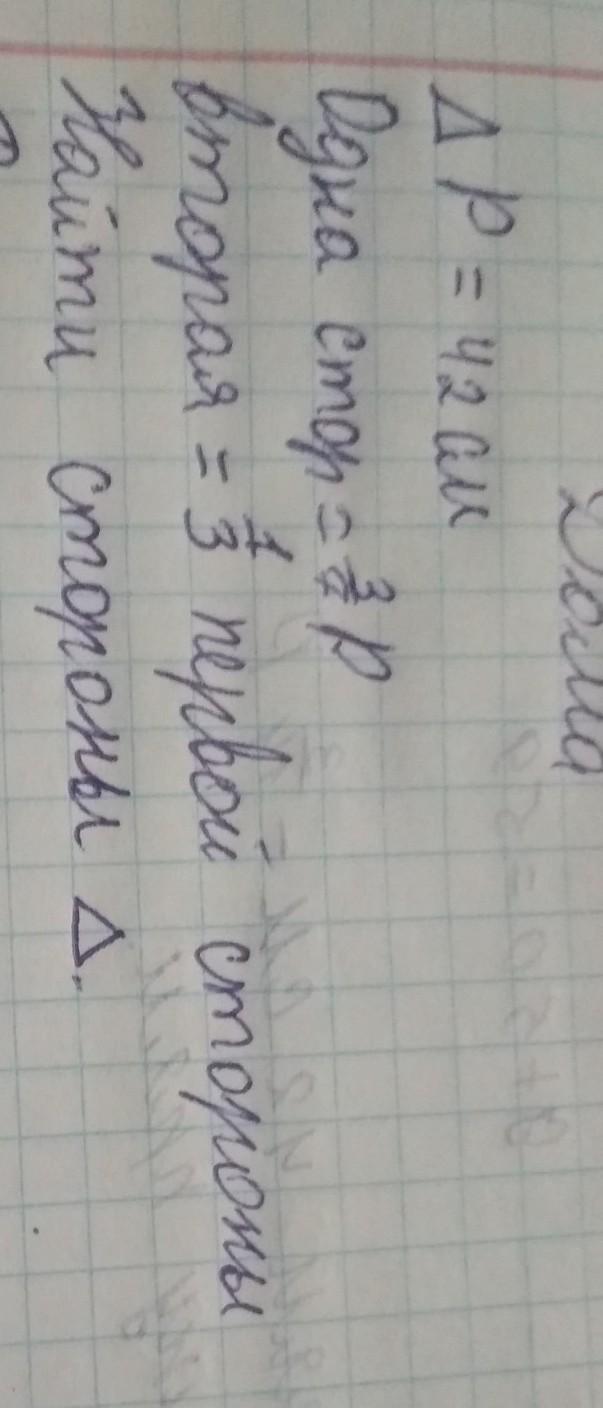 Дома
Δ P = 42 см
Одна стор = 3/7 P
вторая = 1/3 первой стороны
Найти стороны Δ.